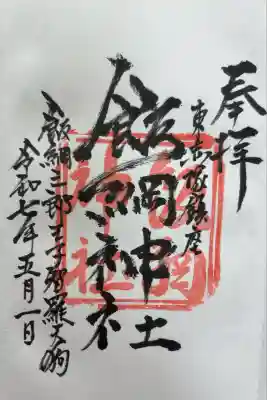 奉拝
鎮座
飯綱神社
飯綱神社
飯綱三郎 智羅天狗
令和七年五月一日